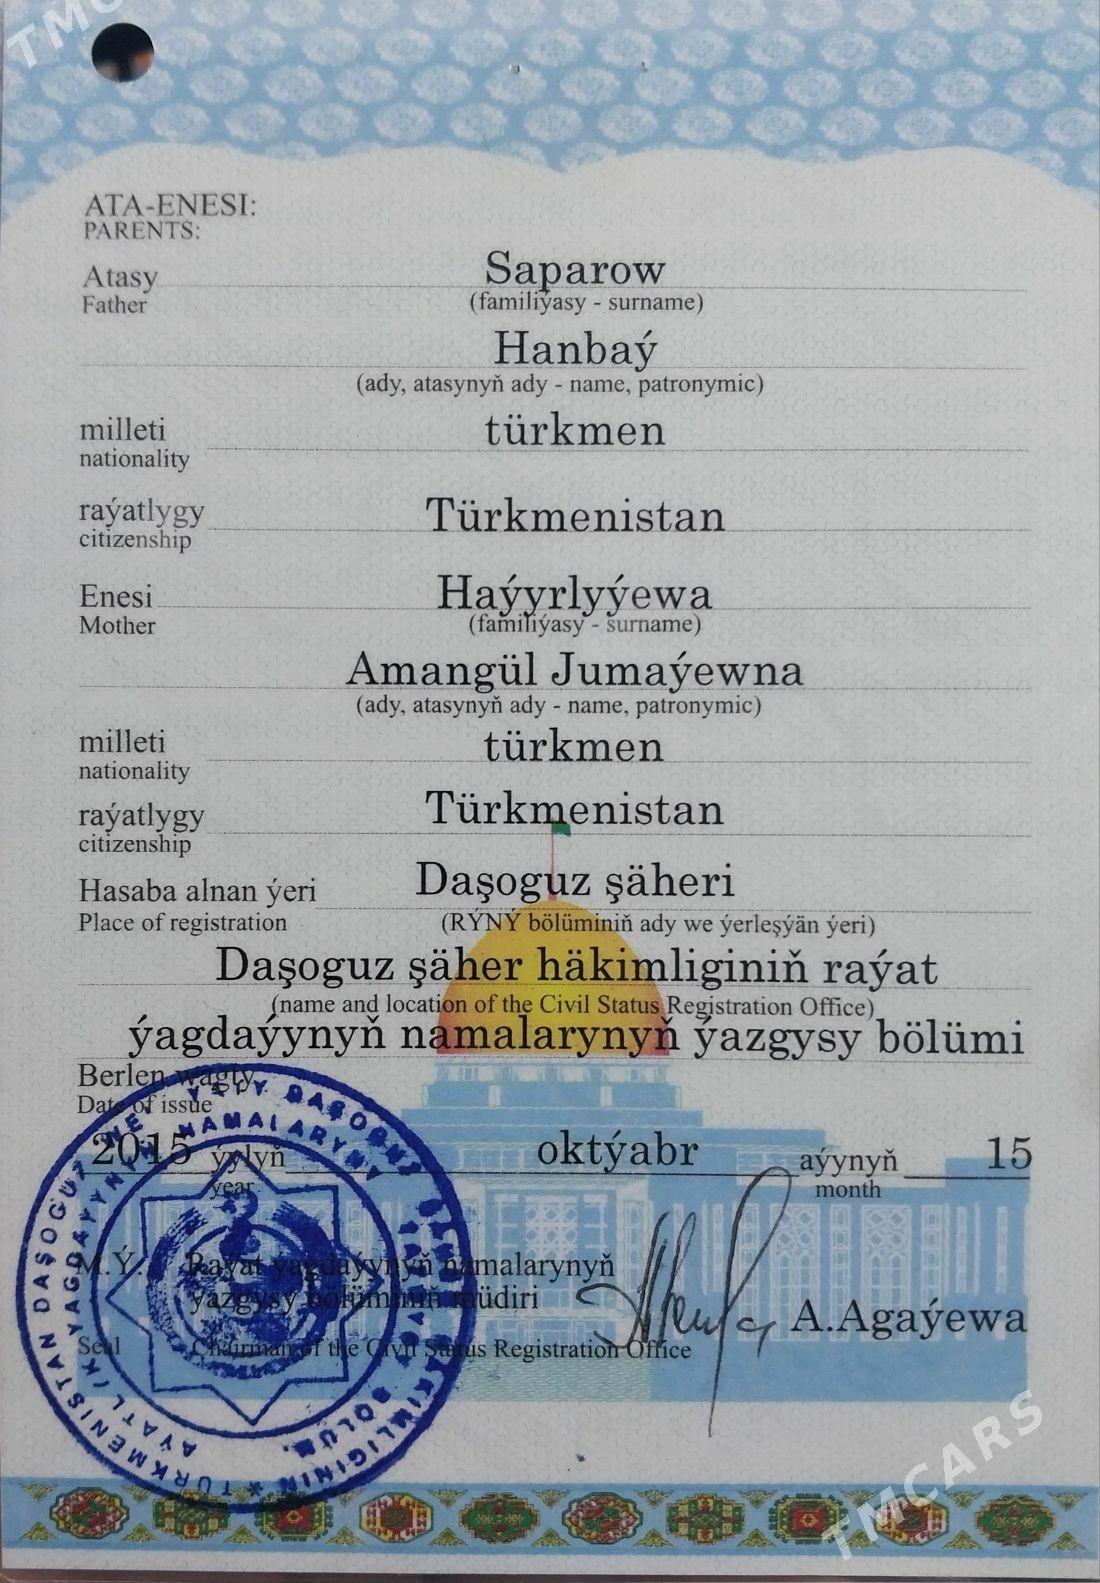 ATA-ENESI:
PARENTS:
Atasy Saparow
Father (familiýasy - surname)
Hanbaý
(ady, atasynyň ady - name, patronymic)
milleti türkmen
nationality
raýatlygy Türkmenistan
citizenship
Enesi Haýyrlyýewa
Mother (familiýasy - surname)
Amangül Jumaýewna
(ady, atasynyň ady - name, patronymic)
milleti türkmen
nationality
raýatlygy Türkmenistan
citizenship
Hasaba alnan ýeri Daşoguz şäheri
Place of registration (RÝNÝ bölüminiň ady we ýerleşýän ýeri)
Daşoguz şäher häkimliginiň raýat
(name and location of the Civil Status Registration Office)
ýagdaýynyň namalarynyň ýazgysy bölümi
Berlen wagty
Date of issue
2015 ýylyň oktýabr aýynyň 15
year month
M.Ý. Raýat ýagdaýynyň namalarynyň
ýazgysy bölüminiň müdiri A.Agaýewa
Seal Chairman of the Civil Status Registration Office
TÜRKMENISTAN DAŞOGUZ
TMCARS